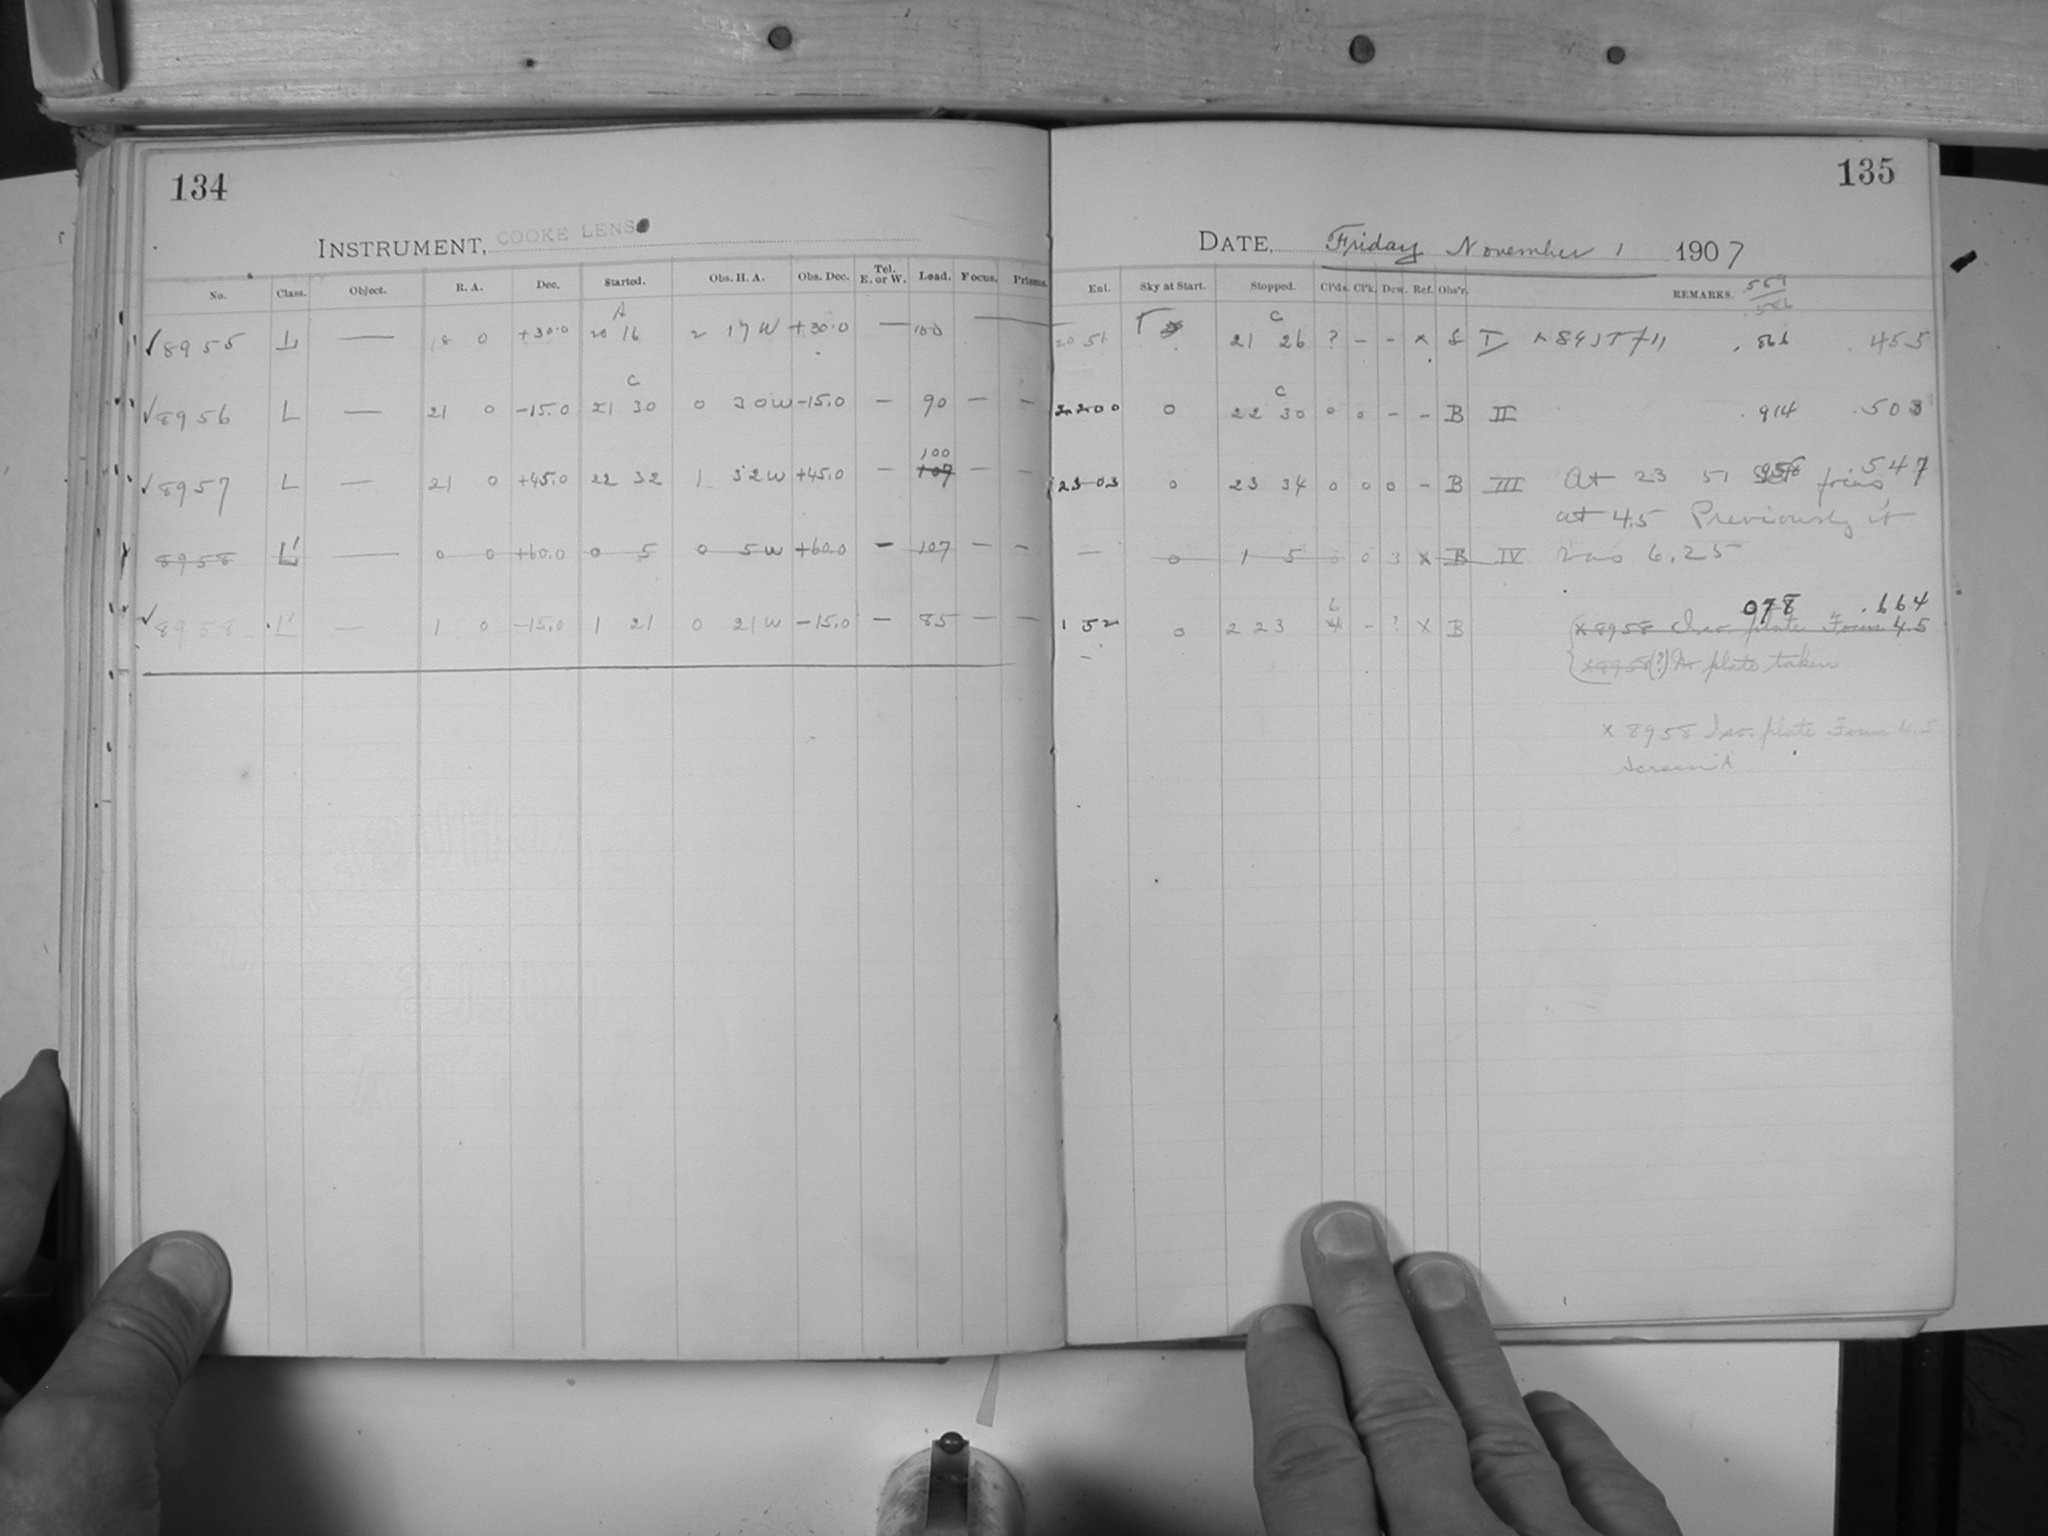 134
INSTRUMENT, COOKE LENS
No. Class. Object. R. A. Dec. Started. Obs. H. A. Obs. Dec. Tel. E. or W. Load. Focus. Prisms.
A
✓8955 L — 18 0 +30.0 20 16 2 17 W +30.0 — 100
C
✓8956 L — 21 0 -15.0 21 30 0 30 W -15.0 — 90 — —
100
✓8957 L — 21 0 +45.0 22 32 1 32 W +45.0 — 107 — —
8958 L' — 0 0 +60.0 0 5 0 5 W +60.0 — 107 — —
✓8958 L' — 1 0 -15.0 1 21 0 21 W -15.0 — 85 — —
135
DATE, Friday November 1 1907
Ent. Sky at Start. Stopped. Cl'ds. Cl'k. Dew. Ref. Obs'r. REMARKS.
C
20 51 21 26 ? - - x I .455
C
22 00 0 22 30 0 0 - - B II .914 .503
23 03 0 23 34 0 0 0 - B III At 23 51 focus .547
at 4.5 Previously it
— 0 1 5 0 0 3 x B IV was 6.25
078 .664
1 52 0 2 23 - ? x B x 8958 Iso. plate Focus 4.5
x 8958 (?) No plate taken
x 8958 Iso. plate Focus 4.5
Screen A